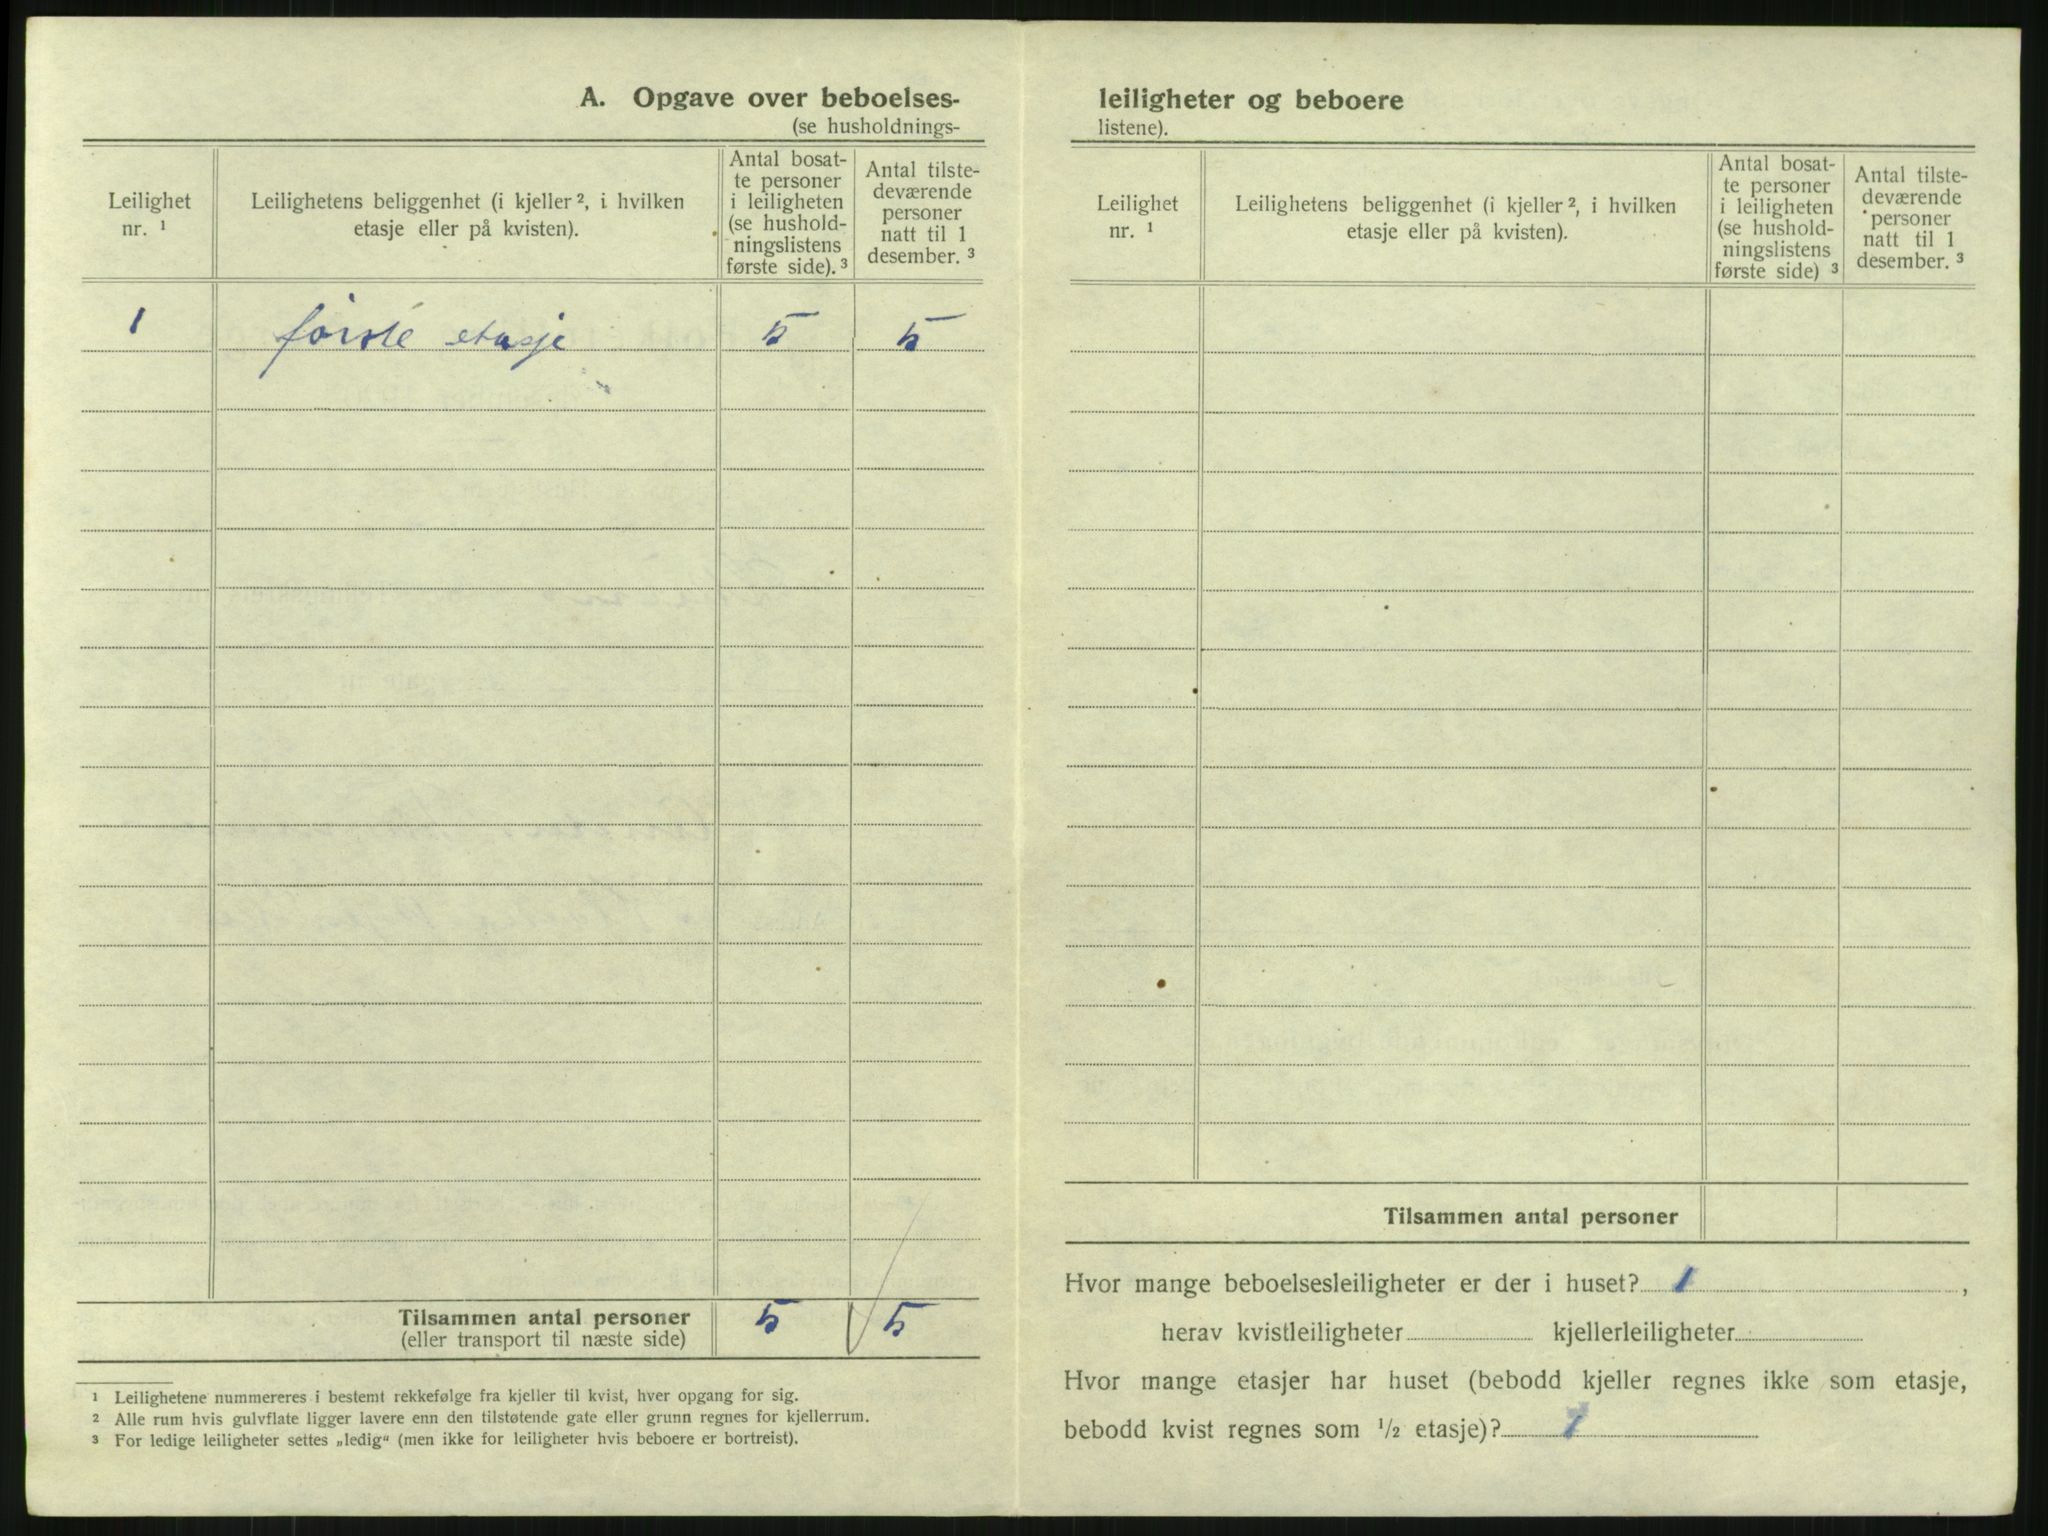 A. Opgave over beboelses-
(se husholdnings-
Leilighet
nr. ¹
Leilighetens beliggenhet (i kjeller ², i hvilken
etasje eller på kvisten).
Antal bosat-
te personer
i leiligheten
(se hushold-
ningslistens
første side). ³
Antal tilste-
deværende
personer
natt til 1
desember. ³
1 første etasje 5 5
Tilsammen antal personer 5 5
(eller transport til næste side)
¹ Leilighetene nummereres i bestemt rekkefølge fra kjeller til kvist, hver opgang for sig.
² Alle rum hvis gulvflate ligger lavere enn den tilstøtende gate eller grunn regnes for kjellerrum.
³ For ledige leiligheter settes „ledig“ (men ikke for leiligheter hvis beboere er bortreist).
leiligheter og beboere
listene).
Leilighet
nr. ¹
Leilighetens beliggenhet (i kjeller ², i hvilken
etasje eller på kvisten).
Antal bosat-
te personer
i leiligheten
(se hushold-
ningslistens
første side) ³
Antal tilste-
deværende
personer
natt til 1
desember. ³
Tilsammen antal personer
Hvor mange beboelsesleiligheter er der i huset? 1 ,
herav kvistleiligheter kjellerleiligheter
Hvor mange etasjer har huset (bebodd kjeller regnes ikke som etasje,
bebodd kvist regnes som ½ etasje)? 1